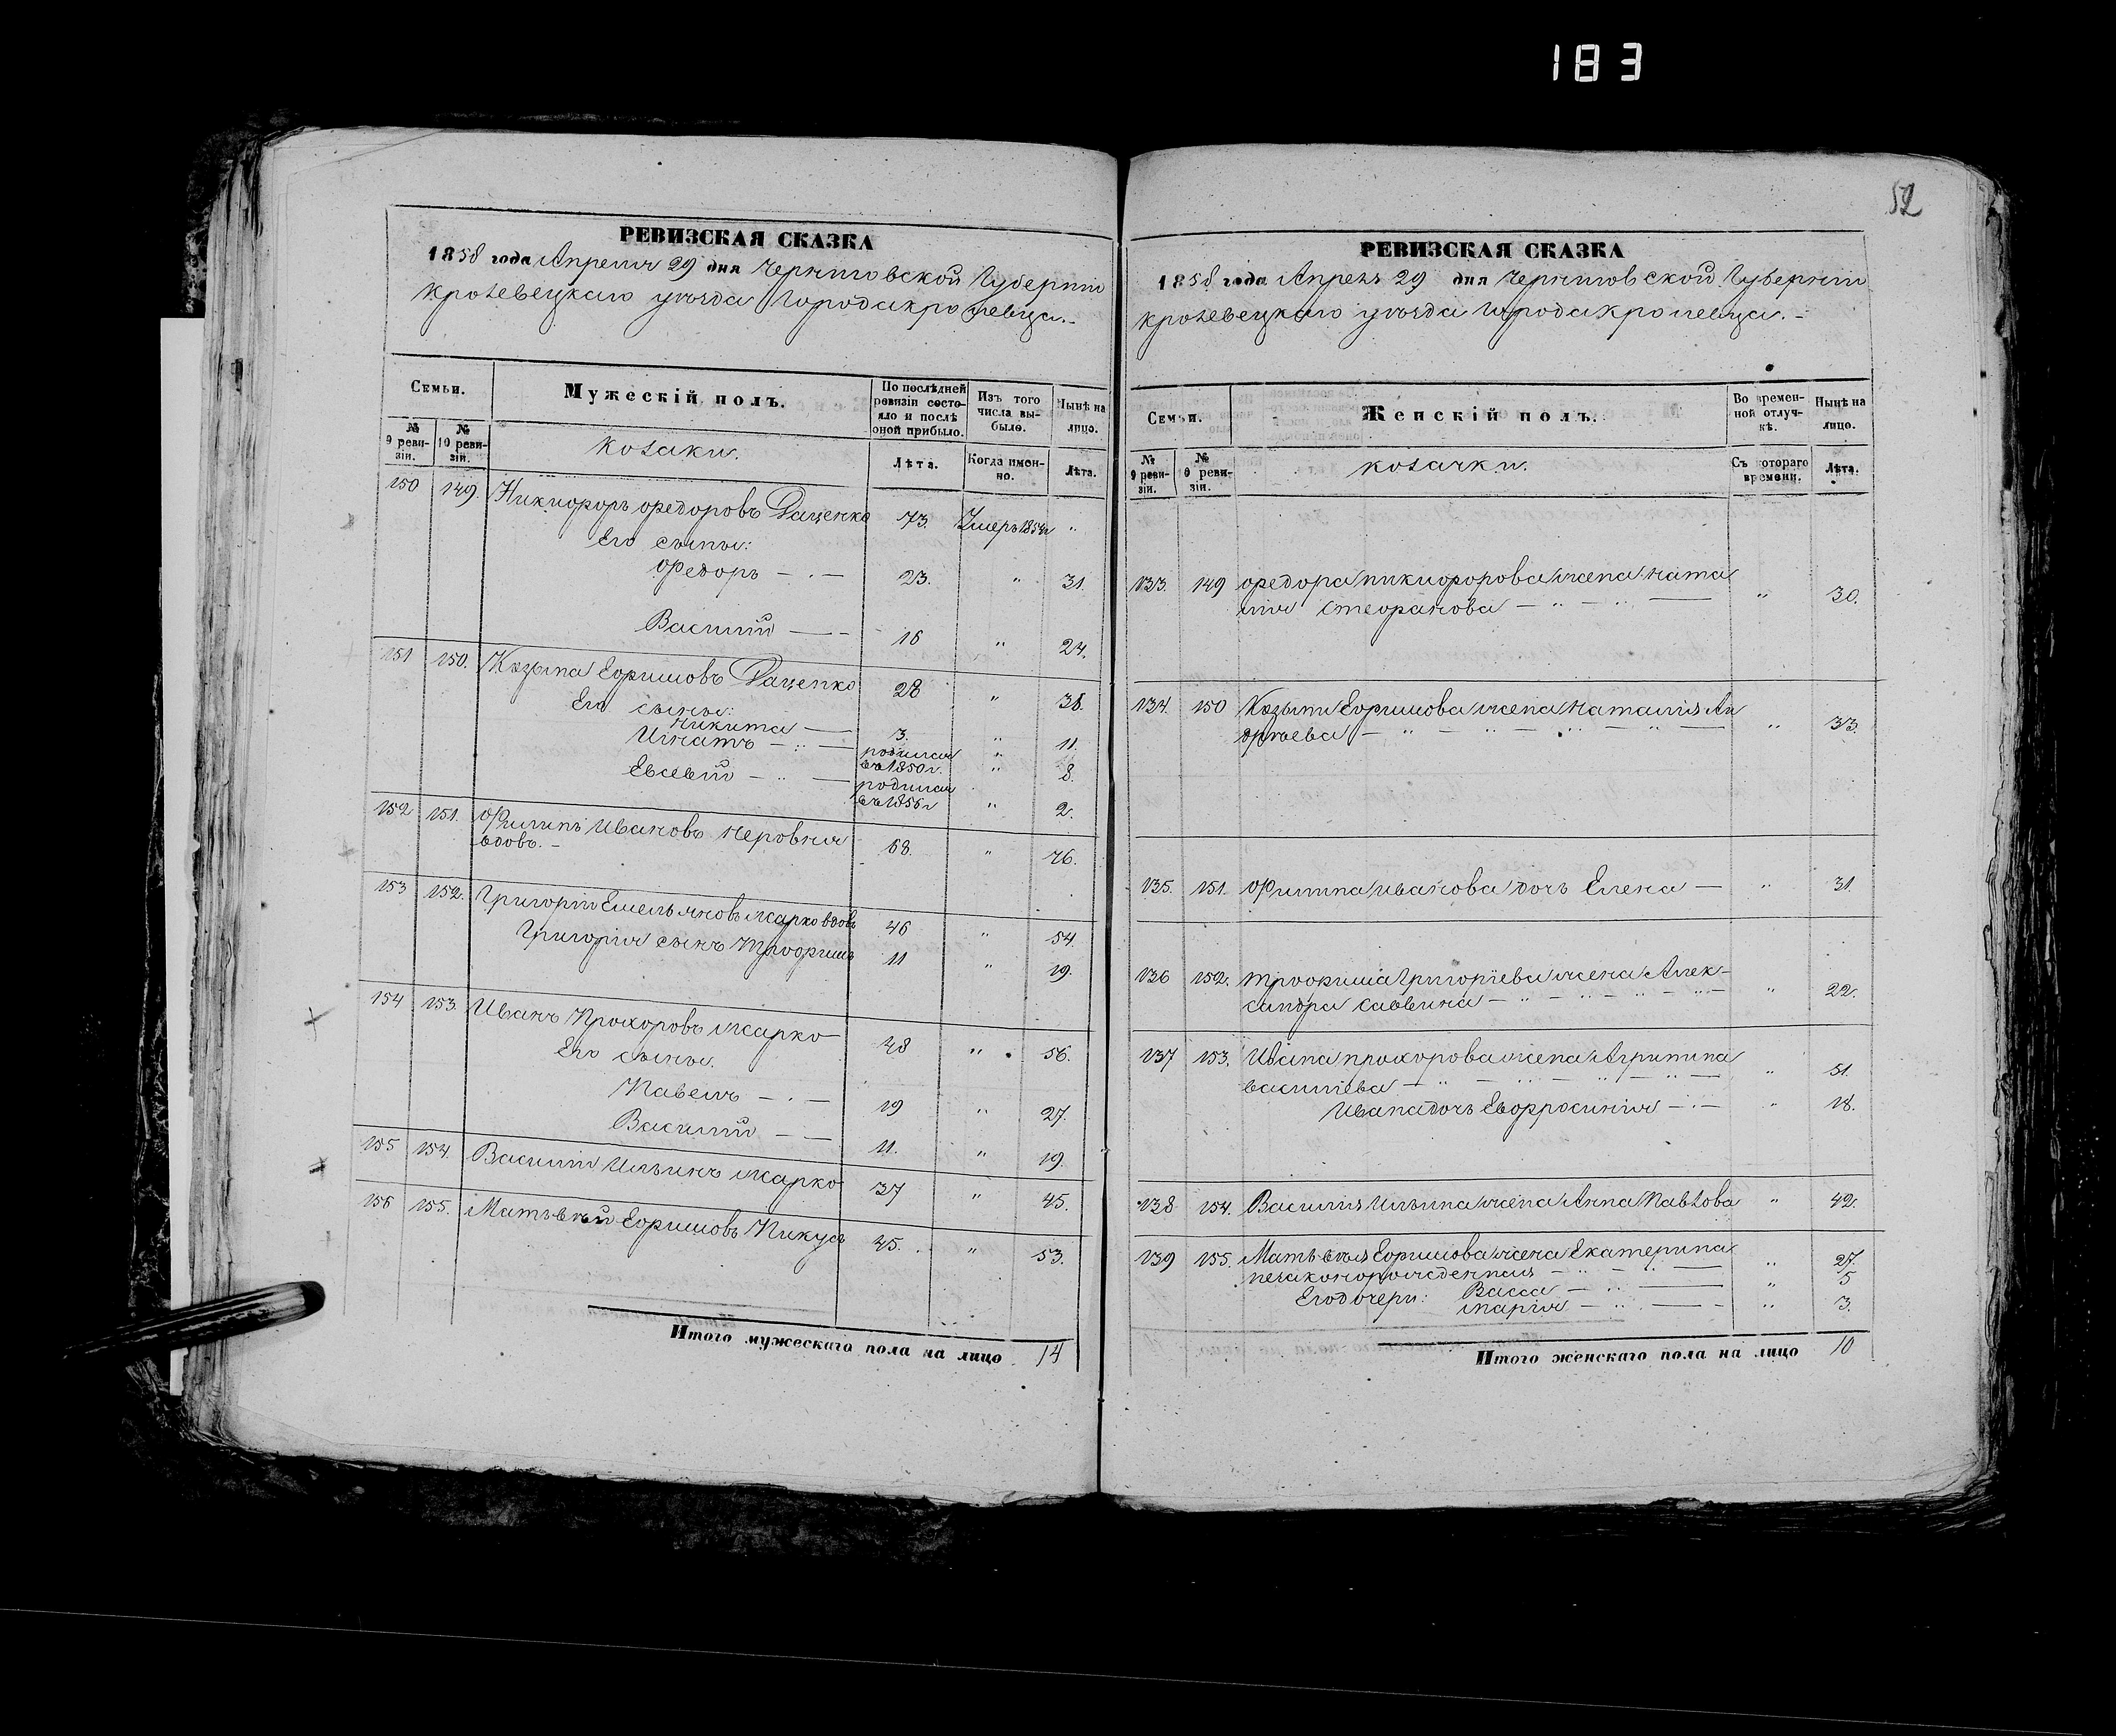 183
52
РЕВИЗСКАЯ СКАЗКА
1858 года Апреля 29 дня Черниговской Губернiи
Кролевецкаго уѣзда Города Кролевца.-
Семьи.
Мужескiй полъ.
По послѣдней ревизiи состояло и послѣ оной прибыло.
Изъ того числа выбыло.
Нынѣ на лицо.
№ 9 ревизiи.
№ 10 ревизiи.
Козаки.
Лѣта.
Когда именно.
Лѣта.
150 149. Никифоръ Федоровъ Даценко 73. Умеръ 1854г "
Его сыны:
Федоръ — . — 23. " 31.
Василiй — - 16 " 24.
151 150. Козьма Ефимовъ Даценко 28 " 38.
Его сыны:
Никита — 3. " 11.
Игнатъ — .. — родился въ 1850 г. " 8.
Евсевiй — .. — родился въ 1856 г " 2.
152 151. Филипъ Ивановъ Неровня 68. " 76.
вдовъ. -
153 152. Григорiй Емельяновъ Жарко вдовъ 46 " 54.
Григорiя сынъ Трофимъ 11 " 19.
154 153. Иванъ Прохоровъ Жарко 48 " 56.
Его сыны.
Павелъ — . — 19 " 27.
Василiй — — 11. " 19.
155 154. Василiй Ильинъ Жарко 37 " 45.
156 155. Матьвѣй Ефимовъ Пикуль 45. " 53.
Итого мужескаго пола на лицо 14
РЕВИЗСКАЯ СКАЗКА
1858 года Апреля 29 дня Черниговской Губернiи
Кролевецкаго уѣзда Города Кролевца. -
Семьи.
Женскiй полъ.
Во временной отлучкѣ.
Нынѣ на лицо.
№ 9 ревизiи.
№ 10 ревизiи.
козачки.
Съ котораго времени.
Лѣта.
133. 149 Федора Никифорова жена Ната
лiя Стефанова — " — " — " 30.
134. 150 Козьми Ефимова жена Наталiя Ан
дрѣева — " — " — " — " — " 33.
135. 151. Филипа Иванова дочь Елена — " 31.
136 152. Трофима Григорiева жена Алек-
сандра Саввина — " — " — " — " 22.
137 153. Ивана Прохорова жена Агрипина
Василiева — " — " — " — " — " 51.
Ивана дочь Евфросинiя — . — " 18.
138 154. Василiя Ильина жена Анна Павлова " 42.
139 155. Матьвѣя Ефимова жена Екатерина
незаконорожденная — " — " — " 27.
Его дочери: Васса — " — " 5
Марiя — " — - " 3.
Итого женскаго пола на лицо 10